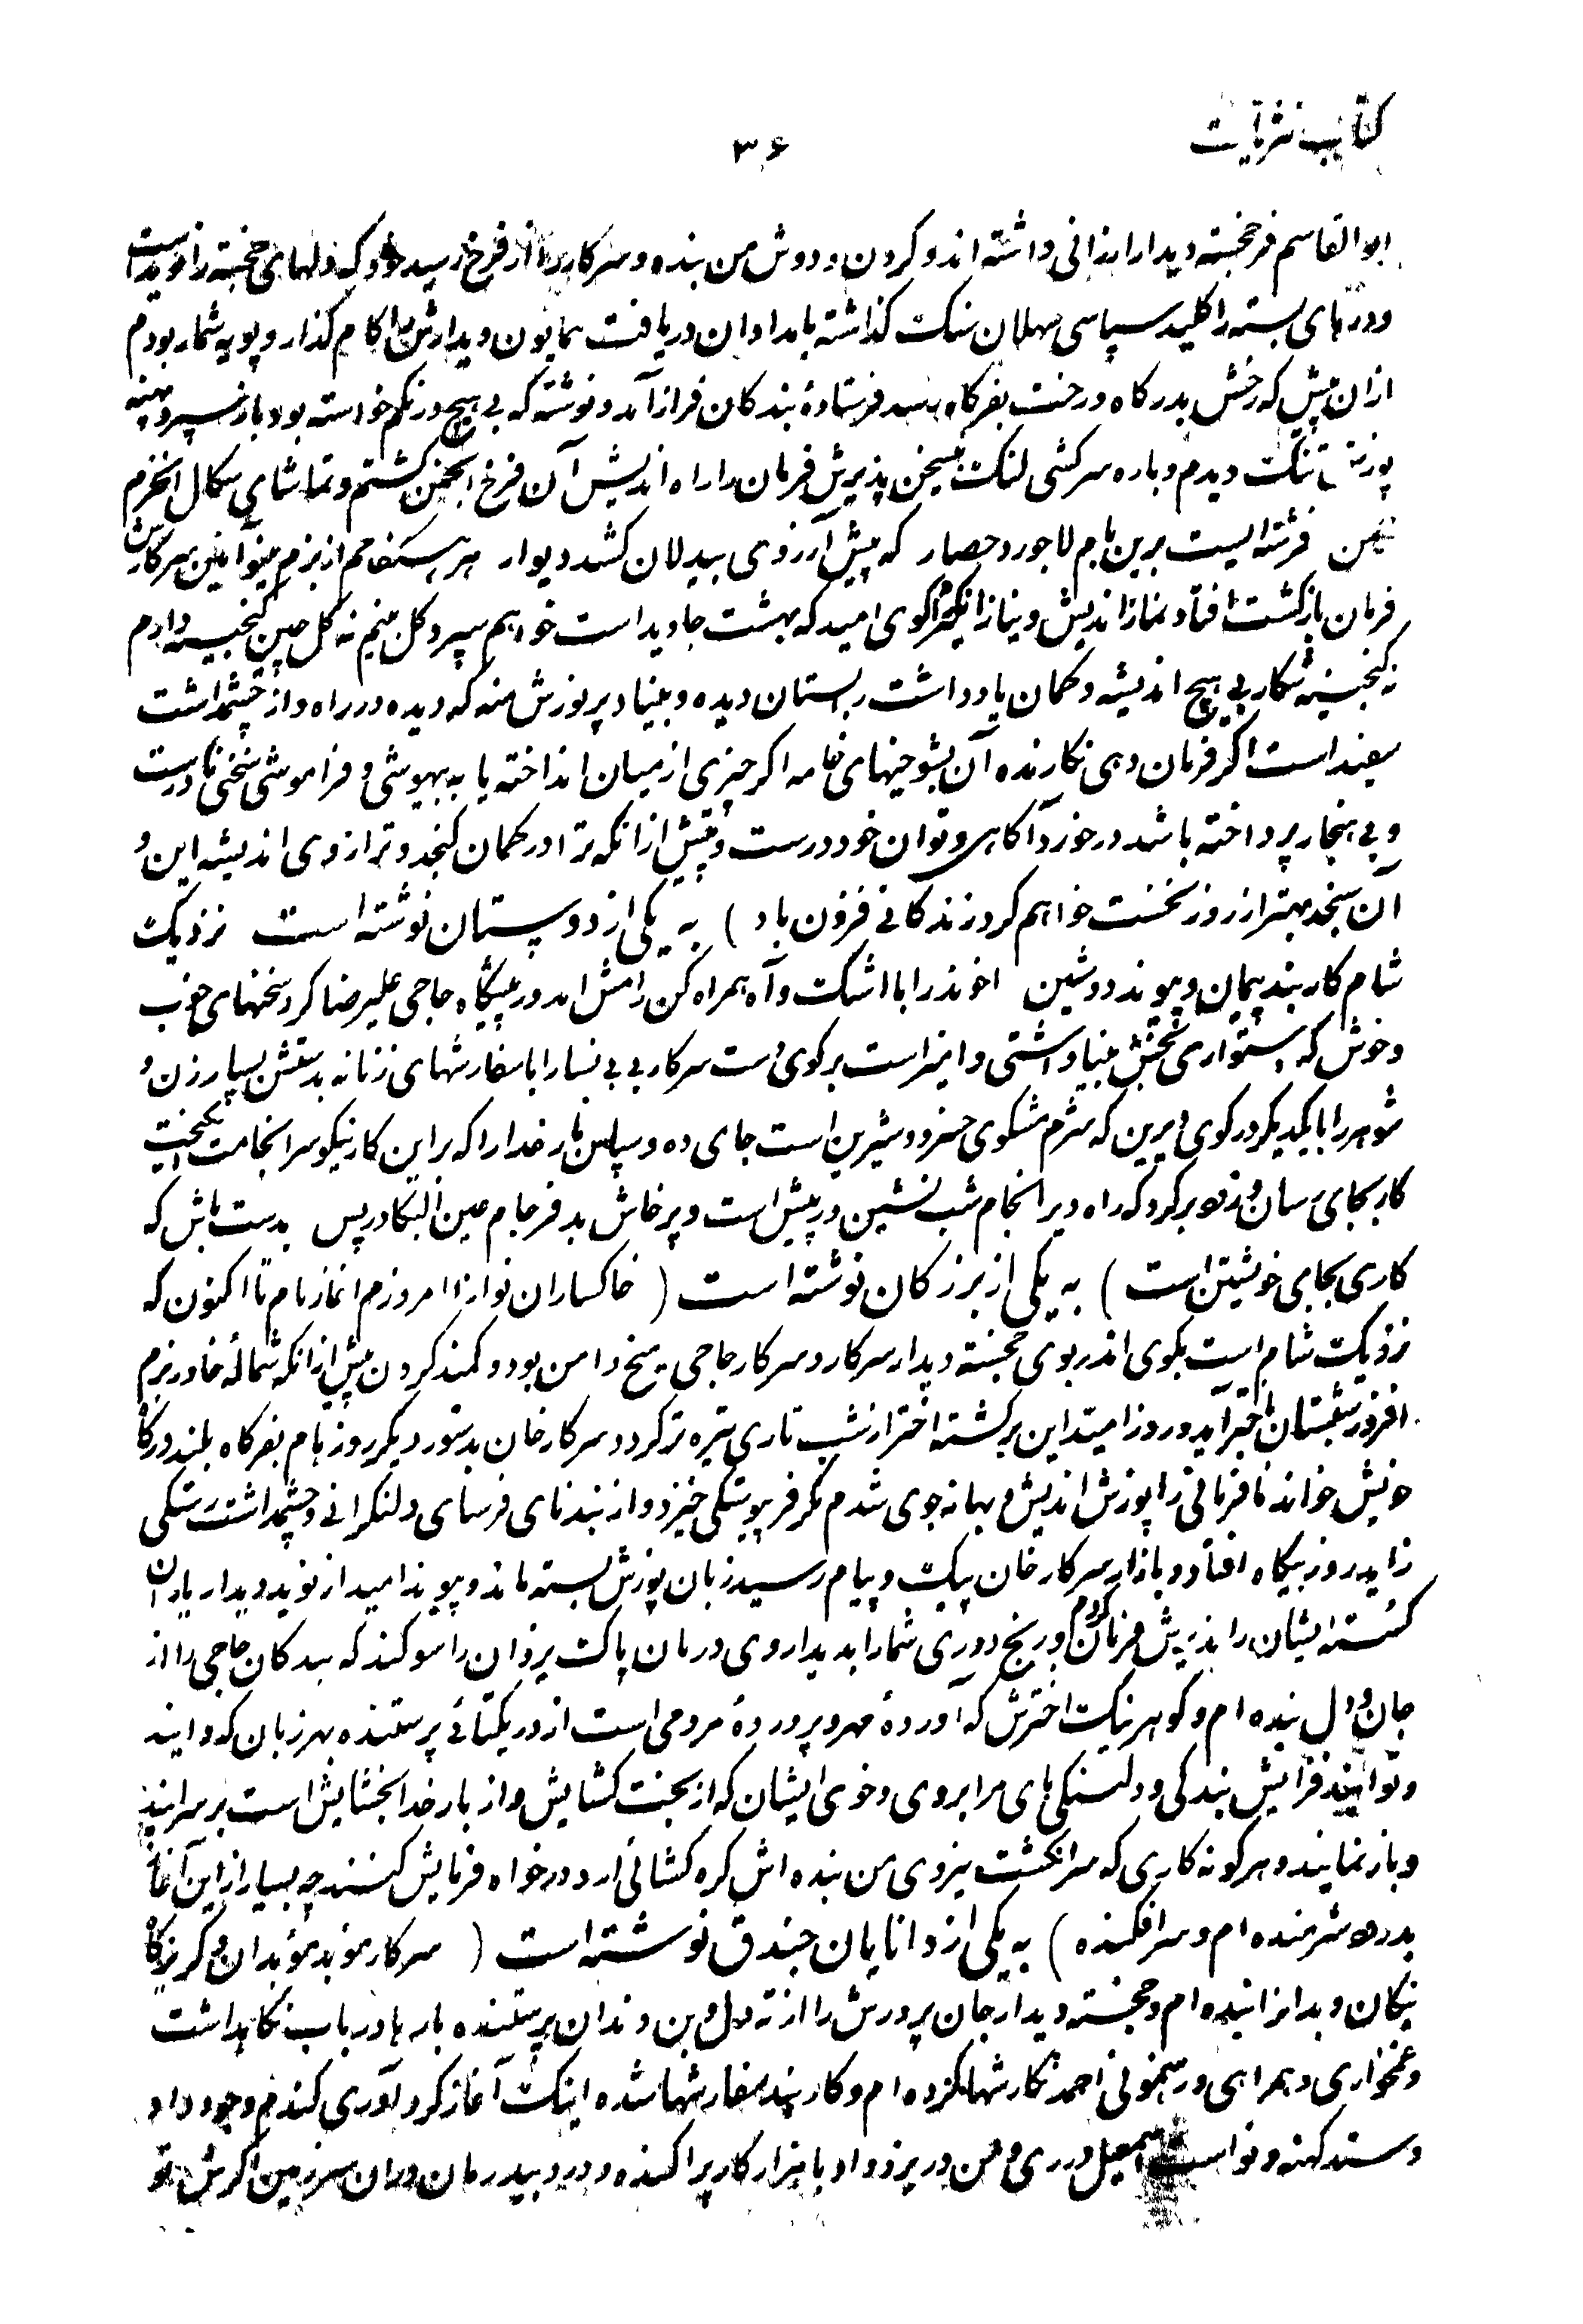 کتاب نثریات
۳۶
ابوالقاسم فرخجسته دیدار ارزانی داشته اند و کردن و دوش من بنده و سرکار را از فرخ رسید خود که دلهای خجسته را نوید است
و درهای بسته را کلید سپاسی مهلان سنک کذاشته بامدادان دریافت همایون دیدارش را کام کذار و پویه شمار بودم
از ان پیش که رخش بدرکاه و رخت بفرکاه رسد فرستادهٔ بندکان فراز آمد و نوشته که بی هیچ درنکم خواسته بود باز سپرد پهنه
پوزش تنک دیدم و باره سرکشی لنک بیخن پذیرش فرمان را راه اندیش آن فرخ انجمن کشتم و تماشای سکال انخرم
چمن فرشته ایست برین بام لاجورد حصار که پیش آرزوی بیدلان کشد دیوار هر هنکام از بزم مینو آئین سرکارش
فرمان بازکشت افتاد نماز اندیش و نیاز انکیز کوی امید که بهشت جاوید است خواهم سپرد کل منیم نه کل چین کنجینه دارم
نه کنجینه شکار بی هیچ اندیشه و کمان یادداشت بستان دیده و بنیاد پر نوزش منه که دیده در راه و از چشمداشت
سفید است اکر فرمان دهی نکارنده آن شوخیهای خامه اکر چیزی از میان انداخته یا به بیهوشی و فراموشی سخنی نادرست
و بی هنجار پرداخته باشد در خورد آکاهی و توان خود درست و پیش از انکه ترا در کمان کنجد و ترازوی اندیشه این و
آن سنجد بهتر از روز نخست خواهم کرد زندکانی فزون باد ) به یکی از دوستان نوشته است نزدیک
شام کار بند پیمان و پیوند دوشین اخوند را با اشک و آه همراه کن رامش اند در پیشکاه حاجی علیرضا کرد سخنهای خوب
و خوش که استواری بخش بنیاد آشتی و اینراست برکوی دست سرکار بی بی نسا را با سفارشهای زنانه بدستش بسپار زن و
شوهر را با یکدیکر در کوی برین که شرم مشکوی خسرو و شیرین است جای ده و سپاس بار خدا را که بر این کار نیکو سرانجامت نیکبخت
کار بجای رسان و زود برکرد که راه دیر انجام شب نشین در پیش است و پرخاش بد فرجام عین البکا در پس بدست باش که
کاری بجای خویشتن است ) به یکی از بزرکان نوشته است ( خاکساران نوازا امروزم اغاز بام تا اکنون که
نزدیک شام است بکوی اندر بوی خجسته دیدار سرکار و سرکار حاجی میخ دامن بود و کمند کردن پیش از انکه شمالهٔ خاور بزم
افروز شبستان باختر آید و روز امید این برکشته اختر از شب تاری تیره تر کردد سرکار خان بدستور دیکر روز بام بفرکاه بلند درکاه
خویش خواند نافرمانی را پوزش اندیش و بهانه جوی شدم مکر فر پیوستکی خیزد و از بند نای فرسای دلنکرانی و چشمداشت رستکی
زاید روز بیکاه افتاد و باز از سرکار خان پیک و پیام رسید زبان پوزش بسته ماند و پیوند امید از نوید دیدار یاران
کسسته ایشان را پذیرش فرمان کردم و رنج دوری شما را بدیدار وی درمان پاک یزدان را سوکند که بندکان حاجی را از
جان و دل بنده ام و کوهر نیک اخترش که آوردهٔ مهر و پروردهٔ مردمی است از در یکتائی پرستنده بهر زبان که دانند
و توانند فزایش بندکی و دلبستکی های مرا بر وی و خوی ایشان که از بخت کشایش و از بار خدا بخشایش است بر سرایند
و باز نمایند و هر کونه کاری که سر انکشت نیروی من بنده اش کره کشائی آرد در خواه فرمایش کنند چه بسیار از این آغاز
بدرود شرمنده ام و سرافکنده ) به یکی از دانایان جندق نوشته است ( سرکار موبد موبدان و کریزکاه
نیکان و بدان را بنده ام و خجسته دیدار جان پرورش را از ته دل و بن دندان پرستنده بارها در باب نکاهداشت
و غمخواری و همراهی و رهنمونی احمد نکارشها کرده ام و کاربند سفارشها شده اینک آغاز کرد آوری کندم و جو و داد
و ستد کهنه و نو است اسمعیل در ری و من در یزد و او با هزار کار پراکنده و درد بیدرمان در ان سرزمین اکرش تو